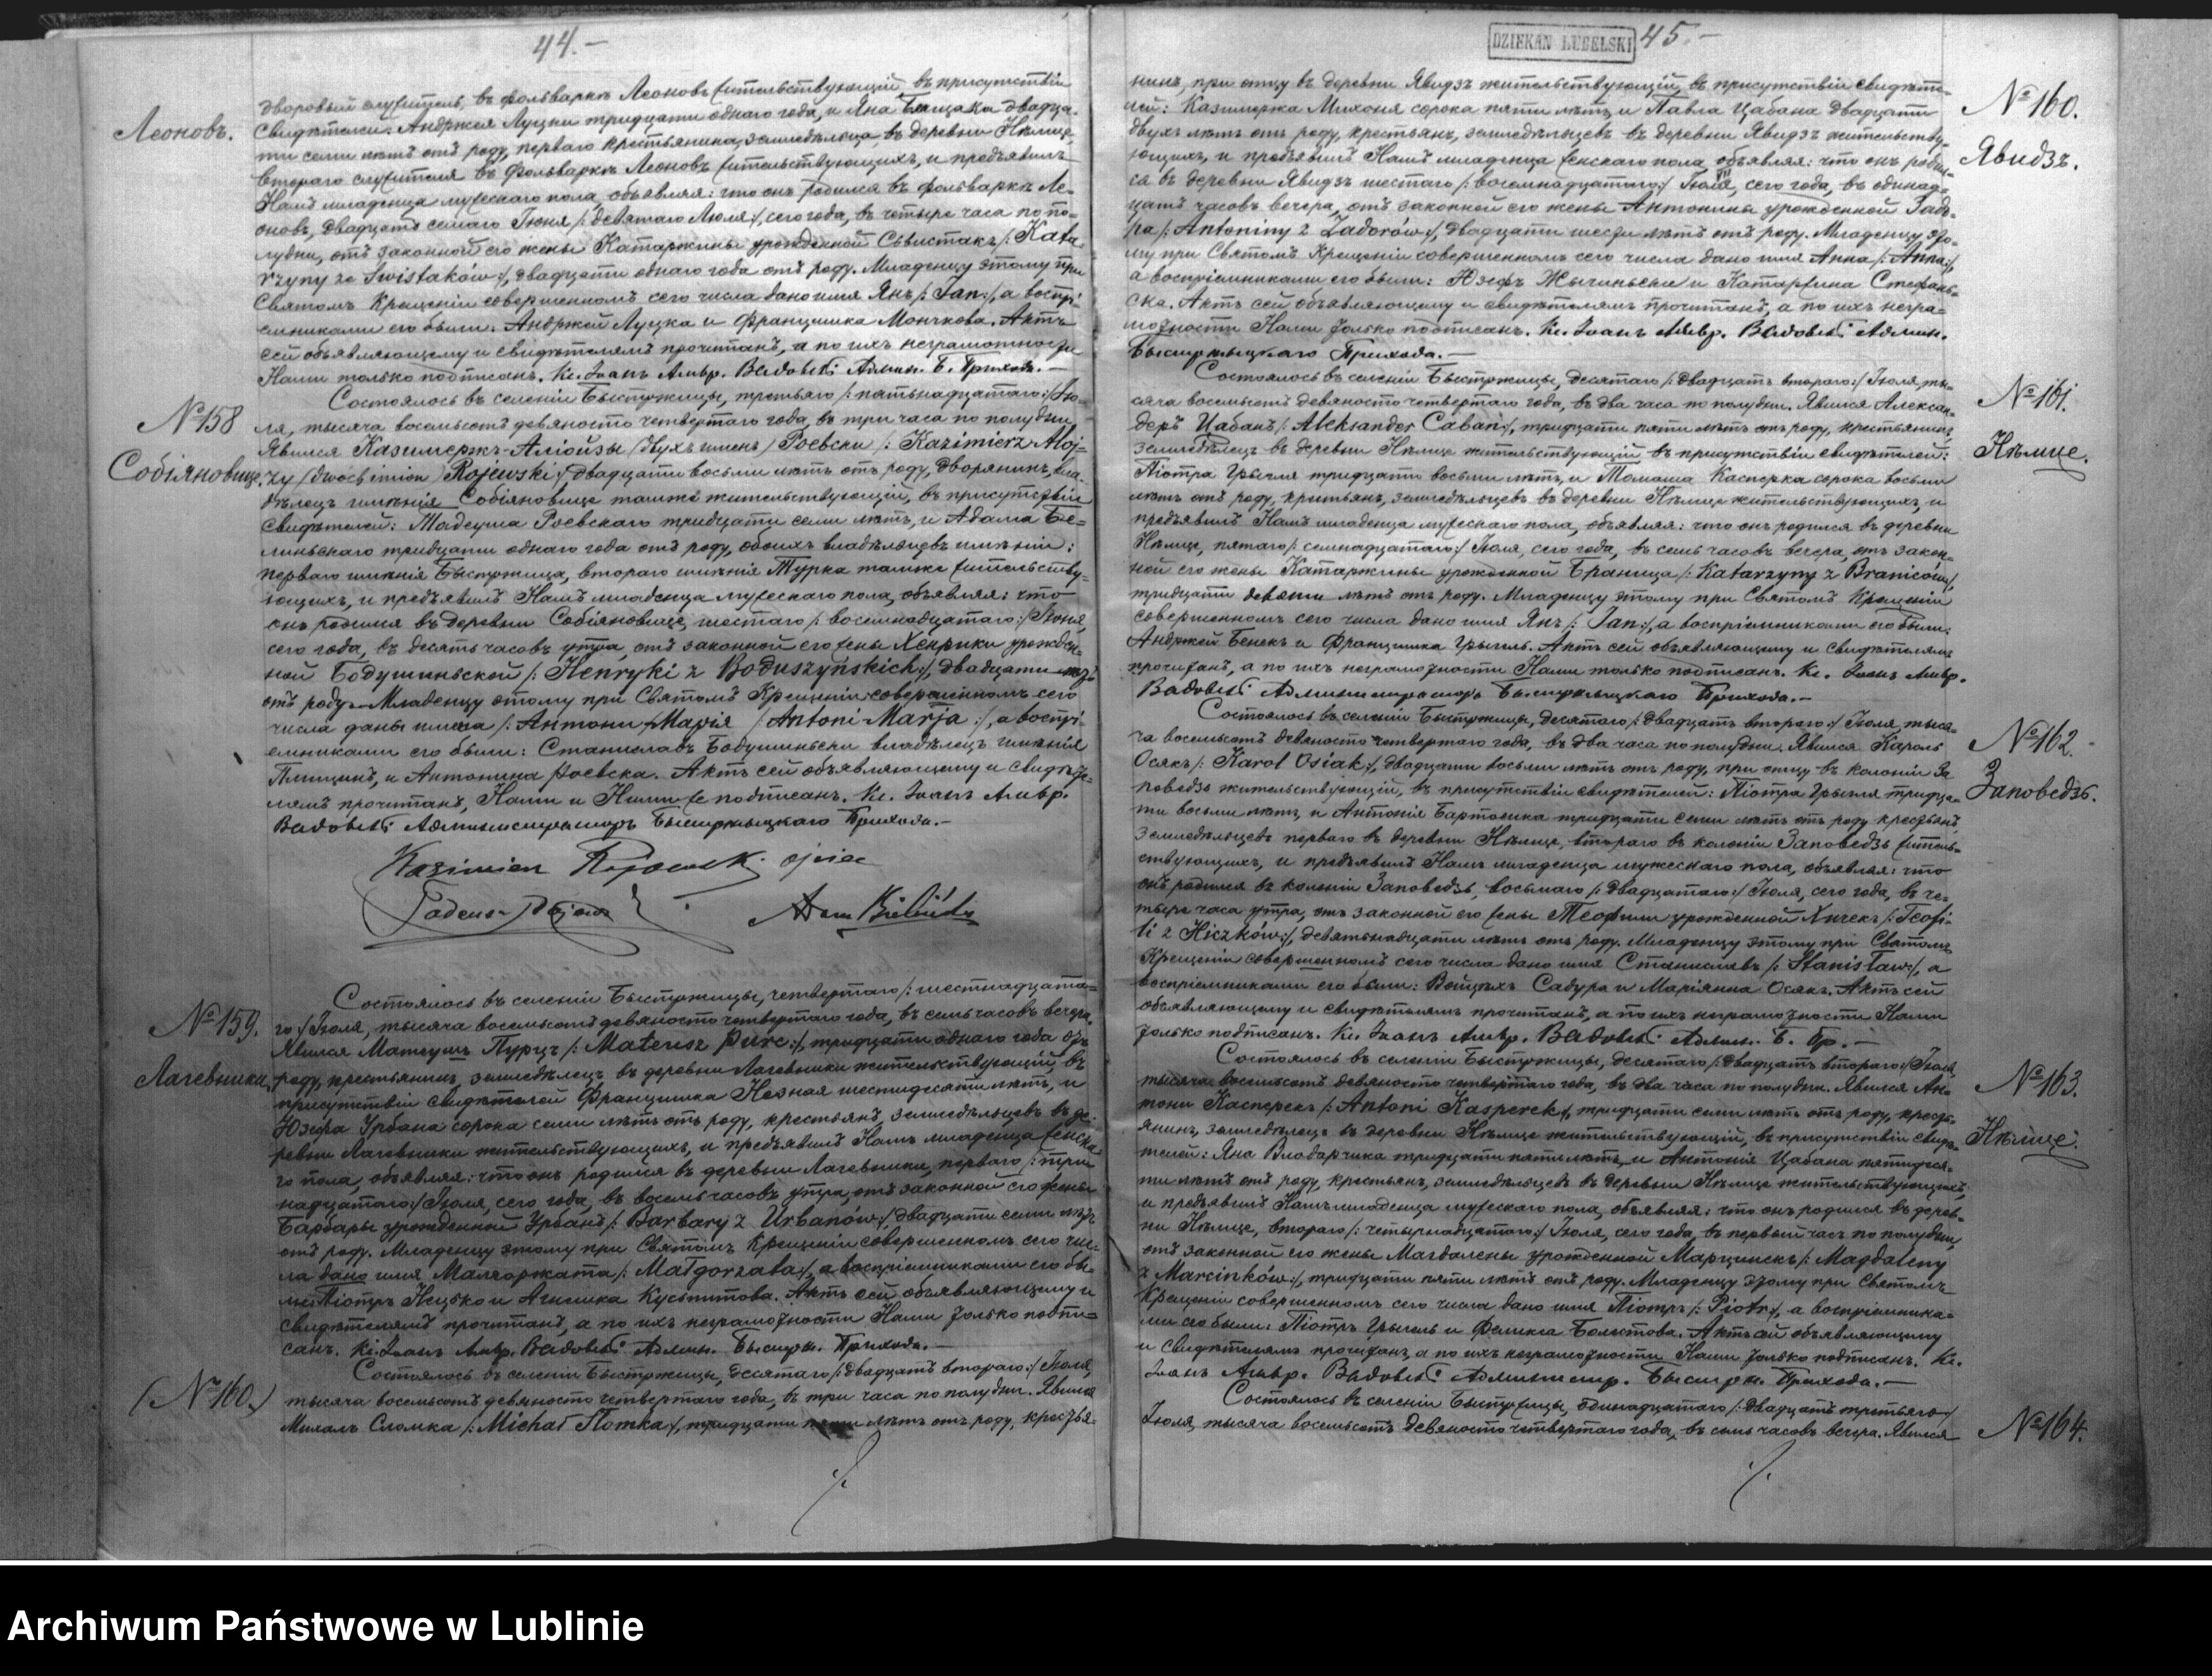 44.-
Леоновъ.
дворовый служитель, въ фольваркѣ Леоновъ жительствующій въ присутствіи
Свидѣтелей: Андржея Луцки тридцати однаго года, и Яна двадца-
ти семи лѣтъ отъ роду, перваго крестьянина, земледѣльца, въ деревни Кѣлще,
втораго служителя въ фольваркѣ Леоновъ жительствующихъ, и предъявилъ
Намъ младенца мужескаго пола, объявляя: что онъ родился въ фольваркѣ Ле-
оновъ, двадцать седмаго Іюня /: девятаго Іюля :/, сего года, въ четыре часа по по-
лудни, отъ законной его жены Катаржины урожденной Свистакъ /: Kata-
rzyny ze Swistaków :/, двадцати однаго года отъ роду. Младенцу этому при
Святомъ Крещеніи совершенномъ сего числа дано имя Янъ /: Jan :/, а воспрі-
емниками его были: Андржей Луцка и Францишка Мончкова. Актъ
сей объявляющему и свидѣтелямъ прочитанъ, а по ихъ неграмотности
Нами только подписанъ. Кс. Іоанъ Амвр. Вадовскі Админ. Б. Прихода.-
№158
Собіяновице.
Состоялось въ селеніи Быстржицы, третьяго /: пятьнадцатаго :/ Ію-
ля, тысяча восемьсотъ девяносто четвертаго года, въ три часа по полудни.
Явился Казимержъ-Алойзы /двухъ именъ/ Роевски /: Kazimierz-Aloj-
zy /dwoch imion/ Rojewski :/, двадцати восьми лѣтъ отъ роду, дворянинъ, вла-
дѣлецъ имѣнія Собіяновице тамже жительствующій, въ присутствіи
Свидѣтелей: Тадеуша Роевскаго тридцати семи лѣтъ, и Адама Бе-
линьскаго тридцати однаго года отъ роду, обоихъ владѣльцевъ имѣній:
перваго имѣнія Быстржица, втораго имѣнія Турка тамже жительству-
ющихъ, и предъявилъ Намъ младенца мужескаго пола, объявляя: что
онъ родился въ деревни Собіяновице, шестаго /: восемнадцатаго :/ Іюня,
сего года, въ десять часовъ утра, отъ законной его жены Хенрики урожден-
ной Бодушиньской /: Henryki z Boduszyńskich :/, двадцати лѣтъ
отъ роду. Младенцу этому при Святомъ Крещеніи совершенномъ сего
числа даны имена /: Антони-Марія /Antoni-Marja :/, а воспрі-
емниками его были: Станиславъ Бодушиньски владѣлецъ имѣнія
и Антонина Роевска. Актъ сей объявляющему и свидѣте-
лямъ прочитанъ, Нами и Ними же подписанъ. Кс. Іоанъ Амвр.
Вадовскі Администраторъ Быстржыцкаго Прихода.-
Kazimierz Rojewski ojciec
Tadeusz Rojewski
Adam Bieliński
№159.
Лагевники
Состоялось въ селеніи Быстржицы, четвертаго /: шестнадцата-
го :/ Іюля, тысяча восемьсотъ девяносто четвертаго года, въ семь часовъ вечера.
Явился Матеушъ Пурцъ /: Mateusz Purc :/, тридцати однаго года отъ
роду, крестьянинъ, земледѣлецъ въ деревни Лагевники жительствующій, въ
присутствіи свидѣтелей Францишка шестидесяти лѣтъ, и
Юзефа Урбана сорока семи лѣтъ отъ роду, крестьянъ, земледѣльцевъ въ де-
ревни Лагевники жительствующихъ, и предъявилъ Намъ младенца женска-
го пола, объявляя: что онъ родился въ деревни Лагевники, перваго /: три-
надцатаго :/ Іюля, сего года, въ восемь часовъ утра, отъ законной его жены
Барбары урожденной Урбанъ /: Barbary z Urbanów :/, двадцати семи лѣтъ
отъ роду. Младенцу этому при Святомъ Крещеніи совершенномъ сего чис-
ла дано имя Малгоржата /: Małgorzata :/, а воспріемниками его бы-
ли: Піотръ и Агнешка. Актъ сей объявляющему и
свидѣтелямъ прочитанъ, а по ихъ неграмотности Нами только подпи-
санъ. Кс. Іоанъ Амвр. Вадовскі Админ. Быстрж. Прихода.-
(№160.)
Состоялось въ селеніи Быстржицы, десятаго /: двадцать втораго :/ Іюля,
тысяча восемьсотъ девяносто четвертаго года, въ три часа по полудни. Явился
Михалъ Сломка /: Michał Słomka :/, тридцати лѣтъ отъ роду, крестья-
./.
DZIEKAN LUBELSKI
45.-
№160.
Явидзъ.
нинъ, при отцу въ деревни Явидзъ жительствующій, въ присутствіи свидѣте-
лей: Казимержа Михоня сорока пяти лѣтъ, и Павла Цабана двадцати
двухъ лѣтъ отъ роду, крестьянъ, земледѣльцевъ въ деревни Явидзъ жительству-
ющихъ, и предъявилъ Намъ младенца женскаго пола, объявляя: что онъ родил-
ся въ деревни Явидзъ шестаго /: восемнадцатаго :/ Іюля, сего года, въ одинад-
цать часовъ вечера, отъ законной его жены Антонины урожденной Задо-
ра /: Antoniny z Zadorów :/, двадцати шести лѣтъ отъ роду. Младенцу это-
му при Святомъ Крещеніи совершенномъ сего числа дано имя Анна /: Anna :/,
а воспріемниками его были: Юзефъ и Катаржина Стефань-
ска. Актъ сей объявляющему и свидѣтелямъ прочитанъ, а по ихъ негра-
мотности Нами только подписанъ. Кс. Іоанъ Амвр. Вадовскі Админ.
Быстржыцкаго Прихода.-
№161.
Кѣлще.
Состоялось въ селеніи Быстржицы, десятаго /: двадцать втораго :/ Іюля, ты-
сяча восемьсотъ девяносто четвертаго года, въ два часа по полудни. Явился Алексан-
деръ Цабанъ /: Aleksander Caban :/, тридцати пяти лѣтъ отъ роду, крестьянинъ,
земледѣлецъ въ деревни Кѣлще жительствующій въ присутствіи свидѣтелей:
Піотра Грыгля тридцати восьми лѣтъ, и Томаша Касперка сорока восьми
лѣтъ отъ роду, крестьянъ, земледѣльцевъ въ деревни Кѣлще жительствующихъ, и
предъявилъ Намъ младенца мужескаго пола, объявляя: что онъ родился въ деревни
Кѣлще, пятаго /: семнадцатаго :/ Іюля, сего года, въ семь часовъ вечера, отъ закон-
ной его жены Катаржины урожденной Браница /: Katarzyny z Braniców :/,
тридцати девяти лѣтъ отъ роду. Младенцу этому при Святомъ Крещеніи
совершенномъ сего числа дано имя Янъ /: Jan :/, а воспріемниками его были:
Андржей Бенекъ и Францишка Грыгель. Актъ сей объявляющему и свидѣтелямъ
прочитанъ, а по ихъ неграмотности Нами только подписанъ. Кс. Іоанъ Амвр.
Вадовскі Администраторъ Быстржыцкаго Прихода.-
№162.
Заповедзъ.
Состоялось въ селеніи Быстржицы, десятаго /: двадцать втораго :/ Іюля, тыся-
ча восемьсотъ девяносто четвертаго года, въ два часа по полудни. Явился Кароль
Осякъ /: Karol Osiak :/, двадцати восьми лѣтъ отъ роду, при отцу въ колоніи За-
поведзъ жительствующій, въ присутствіи свидѣтелей: Піотра Грыгля тридца-
ти восьми лѣтъ, и Антонія Бартошка тридцати семи лѣтъ отъ роду крестьянъ
земледѣльцевъ перваго въ деревни Кѣлще, втораго въ колоніи Заповедзъ житель-
ствующихъ, и предъявилъ Намъ младенца мужескаго пола, объявляя: что
онъ родился въ колоніи Заповедзъ, восьмаго /: двадцатаго :/ Іюля, сего года, въ че-
тыре часа утра, отъ законной его жены Теофили урожденной Хичекъ /: Teofi-
li z Hiczków :/, девятьнадцати лѣтъ отъ роду. Младенцу этому при Святомъ
Крещеніи совершенномъ сего числа дано имя Станиславъ /: Stanisław :/, а
воспріемниками его были: Войцѣхъ Садура и Маріянна Осякъ. Актъ сей
объявляющему и свидѣтелямъ прочитанъ, а по ихъ неграмотности Нами
только подписанъ. Кс. Іоанъ Амвр. Вадовскі Админ. Б. Пр.-
№163.
Кѣлще.
Состоялось въ селеніи Быстржицы, десятаго /: двадцать втораго :/ Іюля,
тысяча восемьсотъ девяносто четвертаго года, въ два часа по полудни. Явился Ан-
тони Касперекъ /: Antoni Kasperek :/, тридцати семи лѣтъ отъ роду, кресть-
янинъ, земледѣлецъ въ деревни Кѣлще жительствующій, въ присутствіи свидѣ-
телей: Яна Влодарчика тридцати пяти лѣтъ, и Антонія Цабана пятидеся-
ти лѣтъ отъ роду, крестьянъ, земледѣльцевъ въ деревни Кѣлще жительствующихъ,
и предъявилъ Намъ младенца мужескаго пола, объявляя: что онъ родился въ дерев-
ни Кѣлще, втораго /: четырнадцатаго :/ Іюля, сего года, въ первый часъ по полудни,
отъ законной его жены Магдалены урожденной Марцинекъ /: Magdaleny
z Marcinków :/, тридцати пяти лѣтъ отъ роду. Младенцу этому при Святомъ
Крещеніи совершенномъ сего числа дано имя Піотръ /: Piotr :/, а воспріемника-
ми его были: Піотръ Грыгель и Феликса. Актъ сей объявляющему
и свидѣтелямъ прочитанъ, а по ихъ неграмотности Нами только подписанъ. Кс.
Іоанъ Амвр. Вадовскі Администр. Быстрж. Прихода.-
№164.
Состоялось въ селеніи Быстржицы, одинадцатаго /: двадцать третьяго :/
Іюля, тысяча восемьсотъ девяносто четвертаго года, въ семь часовъ вечера. Явился
./.
Archiwum Państwowe w Lublinie